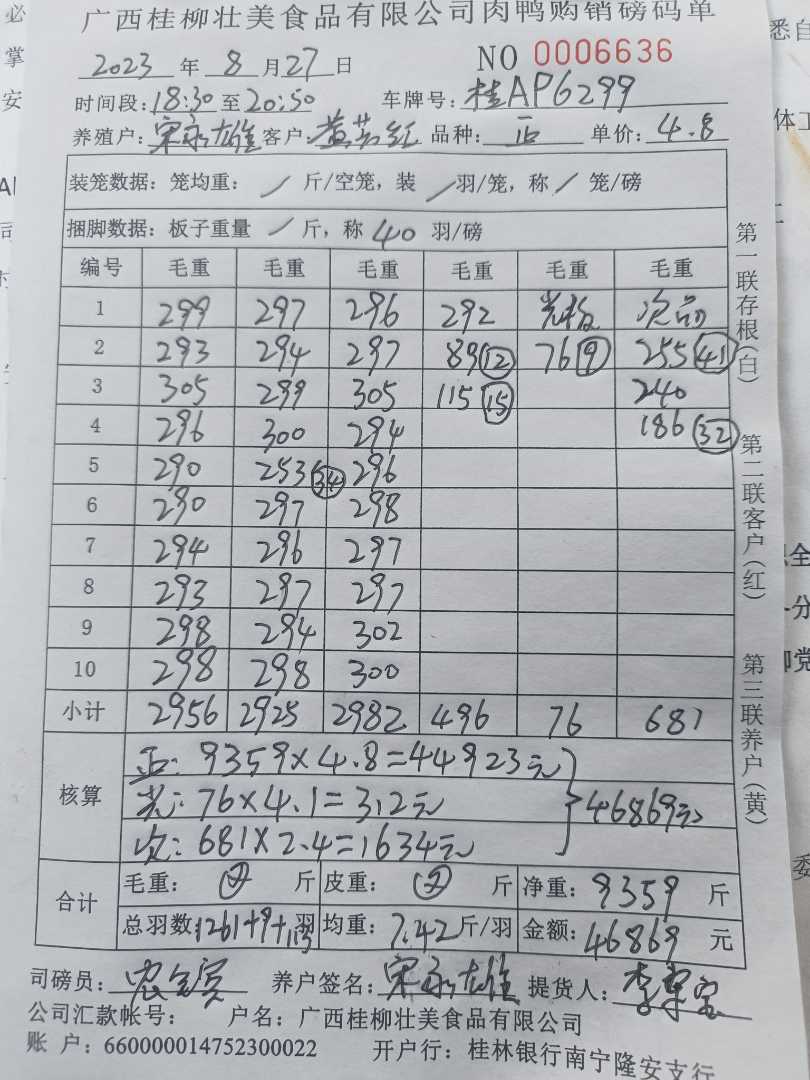 广西桂柳壮美食品有限公司肉鸭购销磅码单
NO 0006636
2023 年 8 月 27 日
时间段: 18:30 至 20:50 车牌号: 桂AP6299
养殖户: 宋永雄 客户: 品种: 正 单价: 4.8
装笼数据: 笼均重: / 斤/空笼, 装 / 羽/笼, 称 / 笼/磅
捆脚数据: 板子重量 / 斤, 称 40 羽/磅
编号 毛重 毛重 毛重 毛重 毛重 毛重
1 299 297 296 292 光板 次品
2 293 294 297 89 12 76 9 255 41
3 305 299 305 115 15 240
4 296 300 294 186 32
5 290 253 34 296
6 290 297 298
7 294 296 297
8 293 297 297
9 298 294 302
10 298 298 300
小计 2956 2925 2982 496 76 681
核算
正: 9359×4.8=44923元
光: 76×4.1=312元
次: 681×2.4=1634元
46869元
合计
毛重: 斤 皮重: 斤 净重: 9359 斤
总羽数: 1261+9+113 羽 均重: 7.42 斤/羽 金额: 46869 元
司磅员: 养户签名: 宋永雄 提货人:
公司汇款帐号: 户名: 广西桂柳壮美食品有限公司
账 户: 660000014752300022 开户行: 桂林银行南宁隆安支行
第一联存根(白)
第二联客户(红)
第三联养户(黄)
必
掌
安
悉自
体工
委